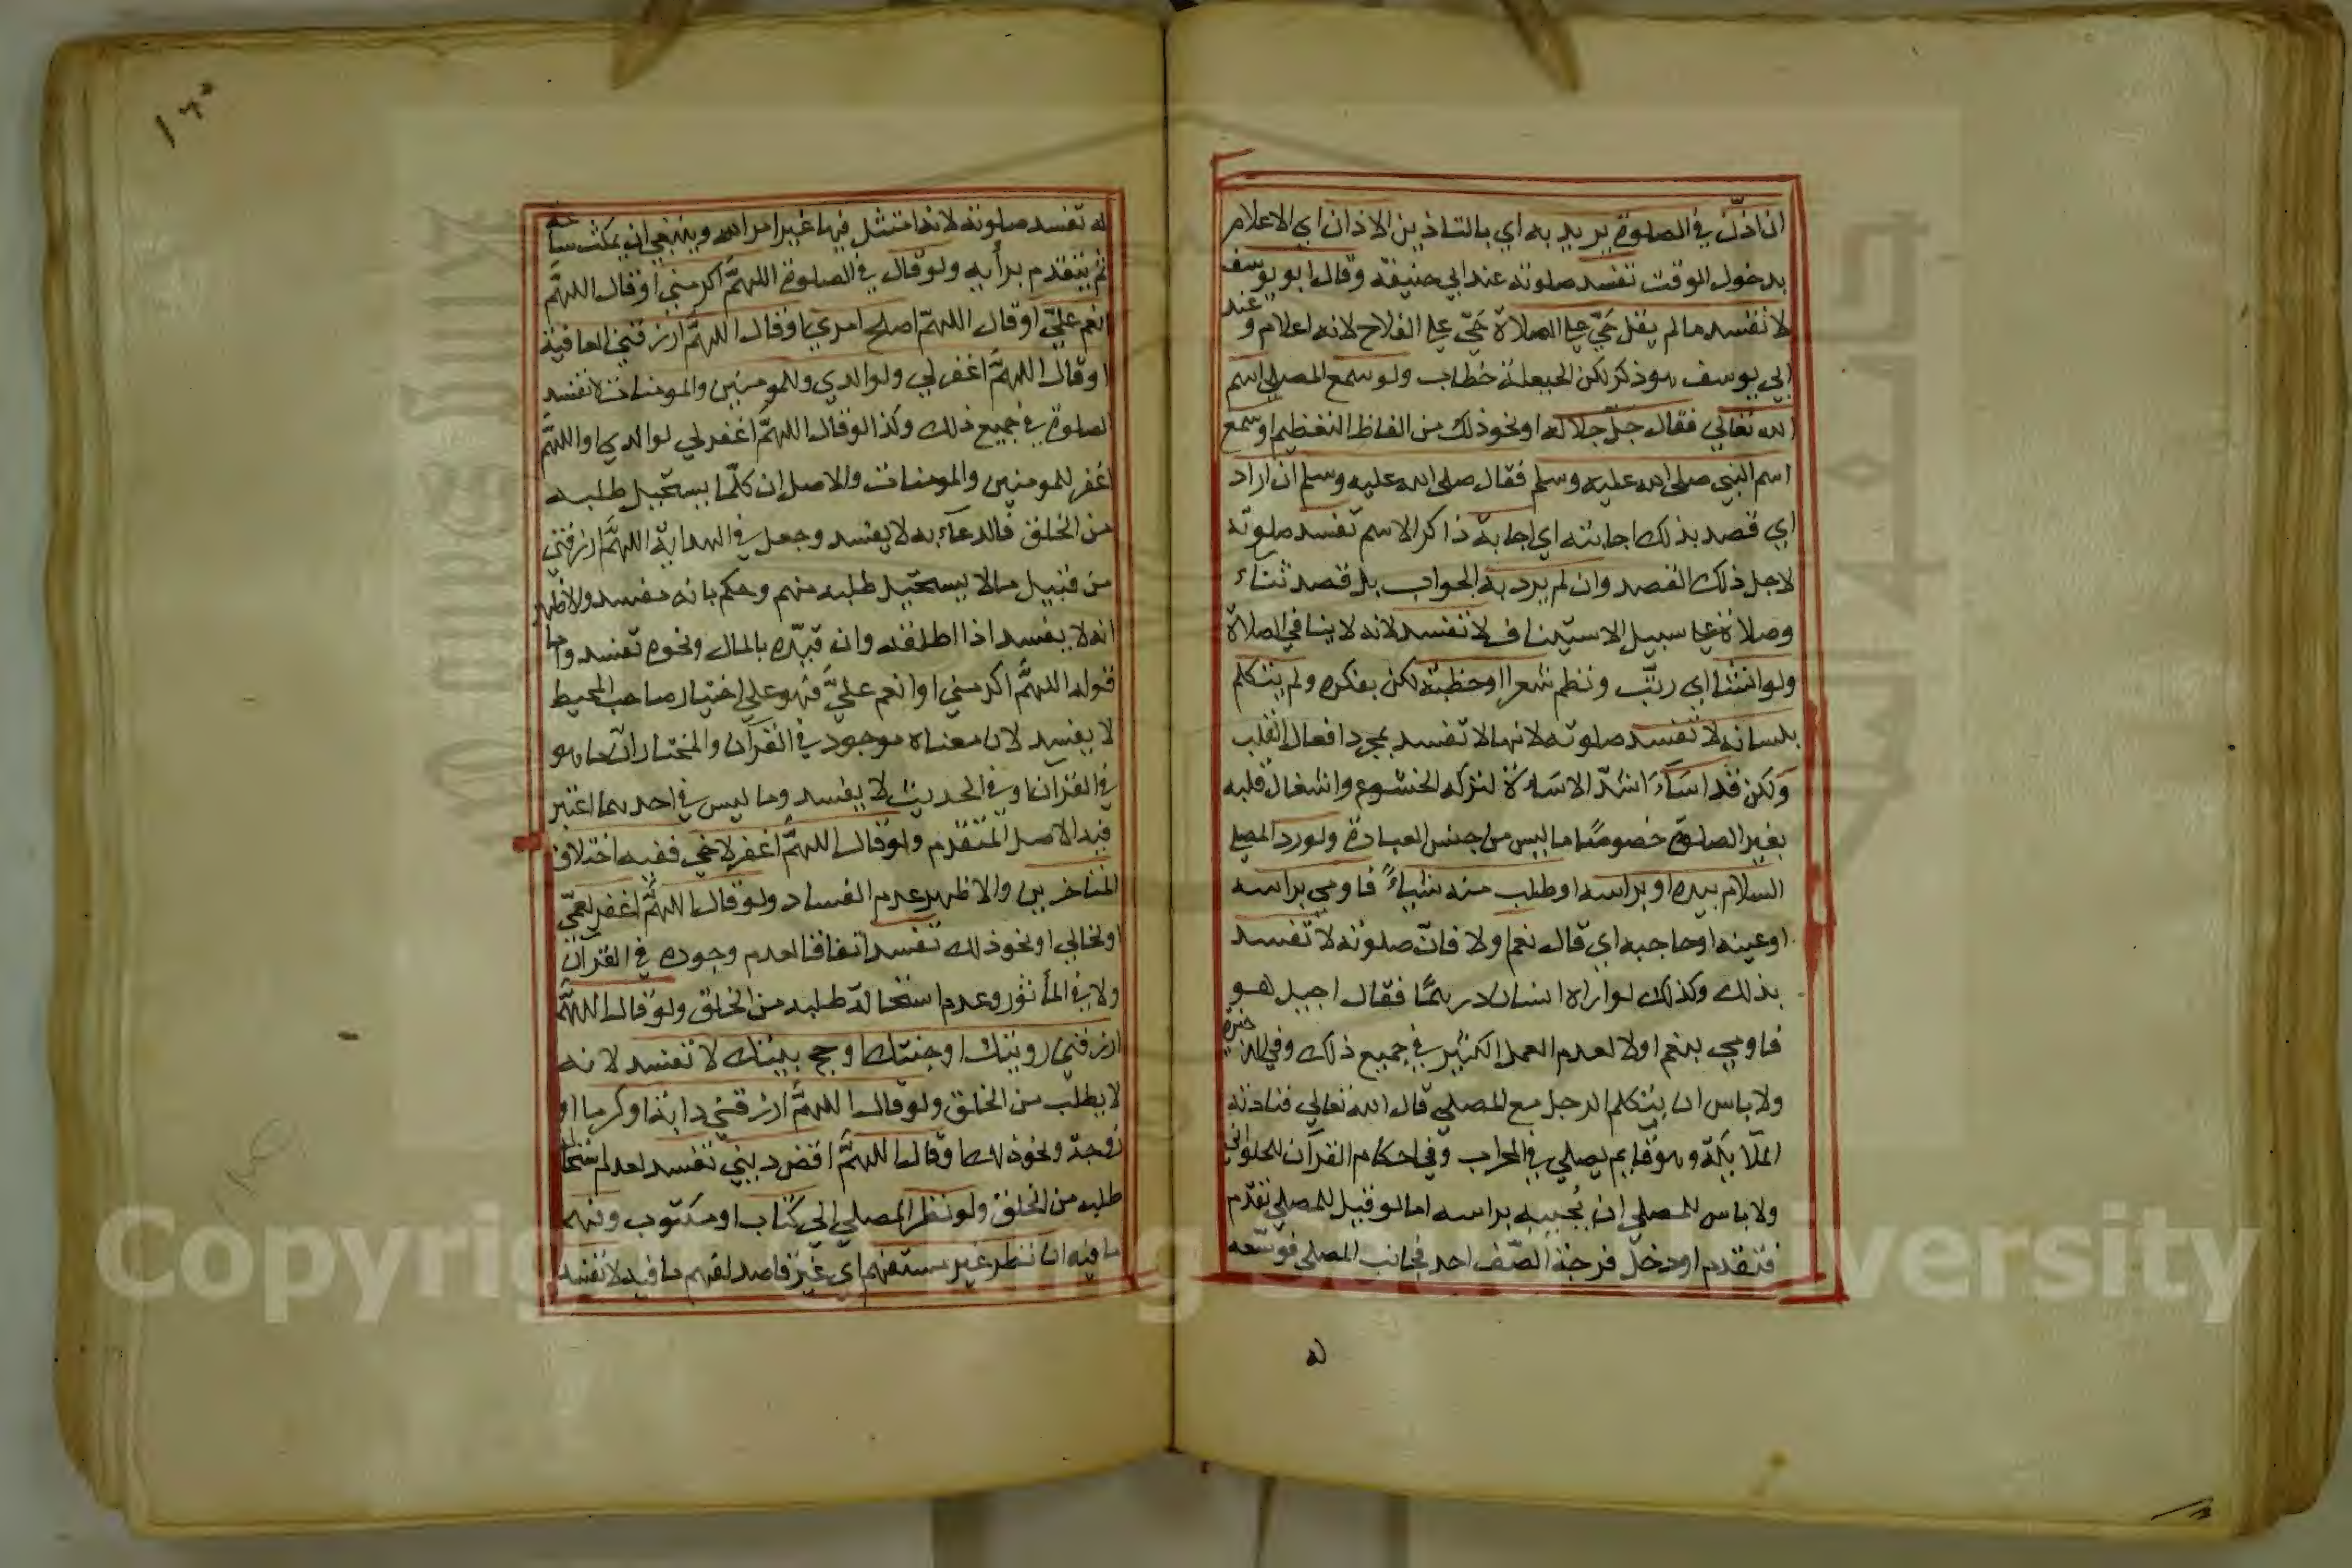 ان اذن في الصلوة يريد به اي بالتاذين الاذان اي الاعلام
بدخول الوقت تفسد صلوته عند ابي حنيفة وقال ابو يوسف
لا تفسد ما لم يقل حيّ على الصلاة حيّ على الفلاح لانه اعلام وعند
ابي يوسف هو ذكر لكن الحيعلة خطاب ولو سمع المصلي اسم
الله تعالي فقال جلّ جلاله او نحو ذلك من الفاظ التعظيم او سمع
اسم النبي صلى الله عليه وسلم فقال صلى الله عليه وسلم ان اراد
اي قصد بذلك اجابته اي اجابة ذاكر الاسم تفسد صلوته
لاجل ذلك القصد وان لم يرد به الجواب بل قصد ثناء
وصلاة على سبيل الاستيناف لا تفسد لانه لا ينافي الصلاة
ولو انشا اي رتّب ونظم شعرا او خطبة لكن بفكره ولم يتكلم
بلسانه لا تفسد صلوته لانها لا تفسد بمجرد افعال القلب
ولكن قد اسَاءَ اشدّ الاساءة لتركه الخشوع واشغال قلبه
بغير الصلوة خصوصًا ما ليس من جنس العبادة ولو رد المصلي
السلام بيده او براسه او طلب منه شياءً فاومي براسه
او عينه او حاجبه اي قال نعم او لا فانّ صلوته لا تفسد
بذلك وكذلك لو اراه انسان درهمًا فقال اجيد هو
فاومي بنعم او لا لعدم العمل الكثير في جميع ذلك وفي الذخيرة
ولا باس ان يتكلم الرجل مع المصلي قال الله تعالي فنادته
الملايكة وهو قايم يصلي في المحراب وفي احكام القرآن للحلواني
ولا باس للمصلي ان يُجيبه براسه اما لو قيل للمصلي تقدّم
فتقدم او دخل فرجة الصّف احد فجانب المصلي فوسّعه
له
١٦٠
له تفسد صلوته لانه امتثل فيها غير امر الله وينبغي ان يمكث ساعة
ثم يتقدم برأيه ولو قال في الصلوة اللهمّ اكرمني او قال اللهمّ
انعم عليّ او قال اللهمّ اصلح امري او قال اللهمّ ارزقني العافية
او قال اللهمّ اغفر لي ولوالدي وللمومنين والمومنات لا تفسد
الصلوة في جميع ذلك وكذا لو قال اللهمّ اغفر لي لوالدي او اللهمّ
اغفر للمومنين والمومنات والاصل ان كلّما يستحيل طلبه
من الخلق فالدعاء به لا يفسد وجعل في الهداية اللهمّ ارزقني
من قبيل ما لا يستحيل طلبه منهم وحكم بانه مفسد والاظهر
انه لا يفسد اذا اطلقه وان قيّده بالمال ونحوه تفسد واما
قوله اللهمّ اكرمني او انعم عليّ فهو على اختيار صاحب المحيط
لا يفسد لان معناه موجود في القرآن والمختار ان ما هو
في القرآن او في الحديث لا يفسد وما ليس في احدهما اعتبر
فيه الاصل المتقدم ولو قال اللهمّ اغفر لاخي ففيه اختلاف
المتاخرين والاظهر عدم الفساد ولو قال اللهمّ اغفر لعمّي
او لخالي او نحو ذلك تفسد اتفاقا لعدم وجوده في القرآن
ولا في المأثور وعدم استحالة طلبه من الخلق ولو قال اللهمّ
ارزقني رويتك او جنتك او حج بيتك لا تفسد لانه
لا يطلب من الخلق ولو قال اللهمّ ارزقني دابة او كرما او
زوجة ونحو ذلك او قال اللهمّ اقض ديني تفسد لعدم استحالة
طلبه من الخلق ولو نظر المصلي الي كتاب او مكتوب وفهم
ما فيه ان نظر غير مستفهم اي غير قاصد لفهم ما فيه لا تفسد
Copyright © King Saud University